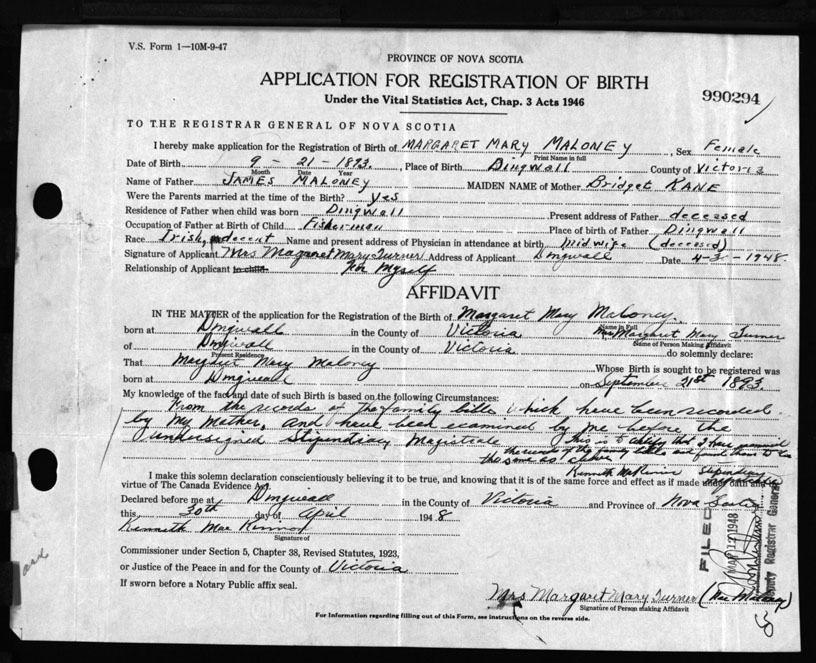 V.S. Form 1—10M-9-47
PROVINCE OF NOVA SCOTIA
APPLICATION FOR REGISTRATION OF BIRTH
Under the Vital Statistics Act, Chap. 3 Acts 1946
990294
TO THE REGISTRAR GENERAL OF NOVA SCOTIA
I hereby make application for the Registration of Birth of MARGARET MARY MALONEY, Sex Female
Print Name in full
Date of Birth 9 - 21 - 1893, Place of Birth Dingwall County of Victoria
Month Date Year
Name of Father JAMES MALONEY MAIDEN NAME of Mother Bridget KANE
Were the Parents married at the time of the Birth? yes
Residence of Father when child was born Dingwall Present address of Father deceased
Occupation of Father at Birth of Child Fisherman Place of birth of Father Dingwall
Race Irish decent Name and present address of Physician in attendance at birth Midwife (deceased)
Signature of Applicant Mrs Magaret Mary Turner Address of Applicant Dingwall Date 4-3-1948
Relationship of Applicant to child For Myself
AFFIDAVIT
IN THE MATTER of the application for the Registration of the Birth of Margaret Mary Maloney.
Name in Full
born at Dingwall in the County of Victoria Mrs Margaret Mary Turner
Name of Person Making Affidavit
of Dingwall in the County of Victoria do solemnly declare:
Present Residence
That Margaret Mary Maloney Whose Birth is sought to be registered was
born at Dingwall on September 21st 1893.
My knowledge of the fact and date of such Birth is based on the following Circumstances:
From the records of the family bible which have been recorded
by my mother, and have been examined by me before the
undersigned Stipendiary Magistrate This is to certify that I have examined
the records of the family bible and found them to be
the same as above
Kenneth McKinnon Stipendiary Magistrate
I make this solemn declaration conscientiously believing it to be true, and knowing that it is of the same force and effect as if made under oath and by
virtue of The Canada Evidence Act.
Declared before me at Dingwall in the County of Victoria and Province of Nova Scotia
this 30th day of April 1948
Kenneth Mac Kinnon
Signature of
Commissioner under Section 5, Chapter 38, Revised Statutes, 1923,
or Justice of the Peace in and for the County of Victoria
If sworn before a Notary Public affix seal.
FILED
1948
Deputy Registrar General
Mrs Margaret Mary Turner (Nee Maloney)
Signature of Person making Affidavit
For Information regarding filling out of this Form, see instructions on the reverse side.